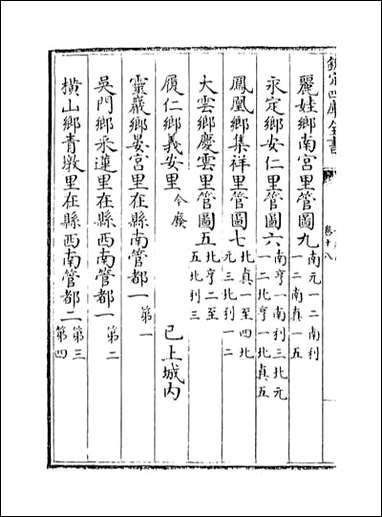 欽定四庫全書
卷十八
麗娃鄉南宮里管圖九南元一二南利一二南真一五
永定鄉安仁里管圖六南亨一南利三北元一二北亨一北真五
鳳凰鄉集祥里管圖七北真一至四北元三北利一二
大雲鄉慶雲里管圖五北亨二至五北利三
履仁鄉義安里今廢 已上城內
靈巖鄉晏宮里在縣南管都一第一
吳門鄉永蓮里在縣西南管都一第二
橫山鄉青墩里在縣西南管都二第三第四